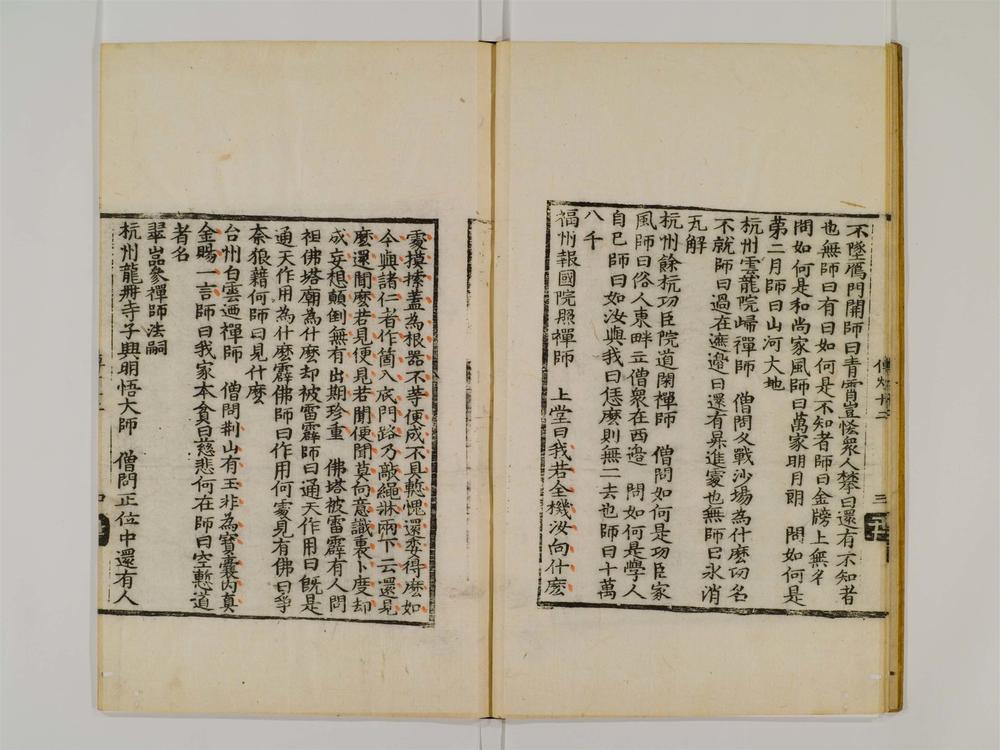 不墜鴈門開師曰青霄豈恡衆人攀曰還有不知者
也無師曰有曰如何是不知者師曰金牓上無名
問如何是和尚家風師曰萬家明月朗　問如何是
苐二月師曰山河大地
杭州雲龍院歸禪師　僧問久戰沙場為什麼功名
不就師曰過在遮邊曰還有昇進處也無師曰永消
瓦解
杭州餘杭功臣院道閑禪師　僧問如何是功臣家
風師曰俗人東畔立僧衆在西邊　問如何是學人
自己師曰如汝與我曰恁麼則無二去也師曰十萬
八千
福州報國院照禪師　上堂曰我若全機汝向什麼
處摸𢱢蓋為根器不等便成不具慙愧還委得麼如
今與諸仁者作箇入底門路乃敲繩牀兩下云還見
麼還聞麼若見便見若聞便聞莫向意識裏卜度却
成妄想顛倒無有出期珍重　佛塔被雷霹有人問
祖佛塔廟為什麼却被雷霹師曰通天作用曰旣是
通天作用為什麼霹佛師曰作用何處見有佛曰爭
柰狼藉何師曰見什麼
台州白雲迺禪師　僧問荆山有玉非為寶囊内真
金賜一言師曰我家本貧曰慈悲何在師曰空慙道
者名
翠巖參禪師法嗣
杭州龍冊寺子興明悟大師　僧問正位中還有人
傳灯十二
三